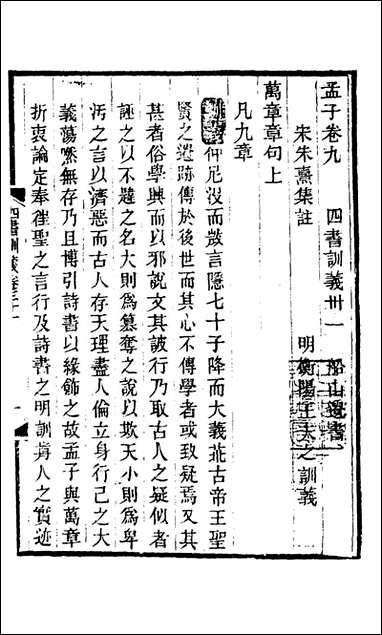 孟子卷九　四書訓義卅一　船山遺書
宋朱熹集註　明衡陽王夫之訓義
萬章章句上
凡九章
訓義仲尼沒而微言隱七十子降而大義乖古帝王聖
賢之遺跡傳於後世而其心不傳學者或致疑焉又其
甚者俗學興而以邪說文其詖行乃取古人之疑似者
誣之以不韙之名大則為篡奪之說以欺天小則為卑
汚之言以濟惡而古人存天理盡人倫立身行己之大
義蕩然無存乃且博引詩書以緣飾之故孟子與萬章
折衷論定奉往聖之言行及詩書之明訓與人之實迹
四書訓義卷三十一　一